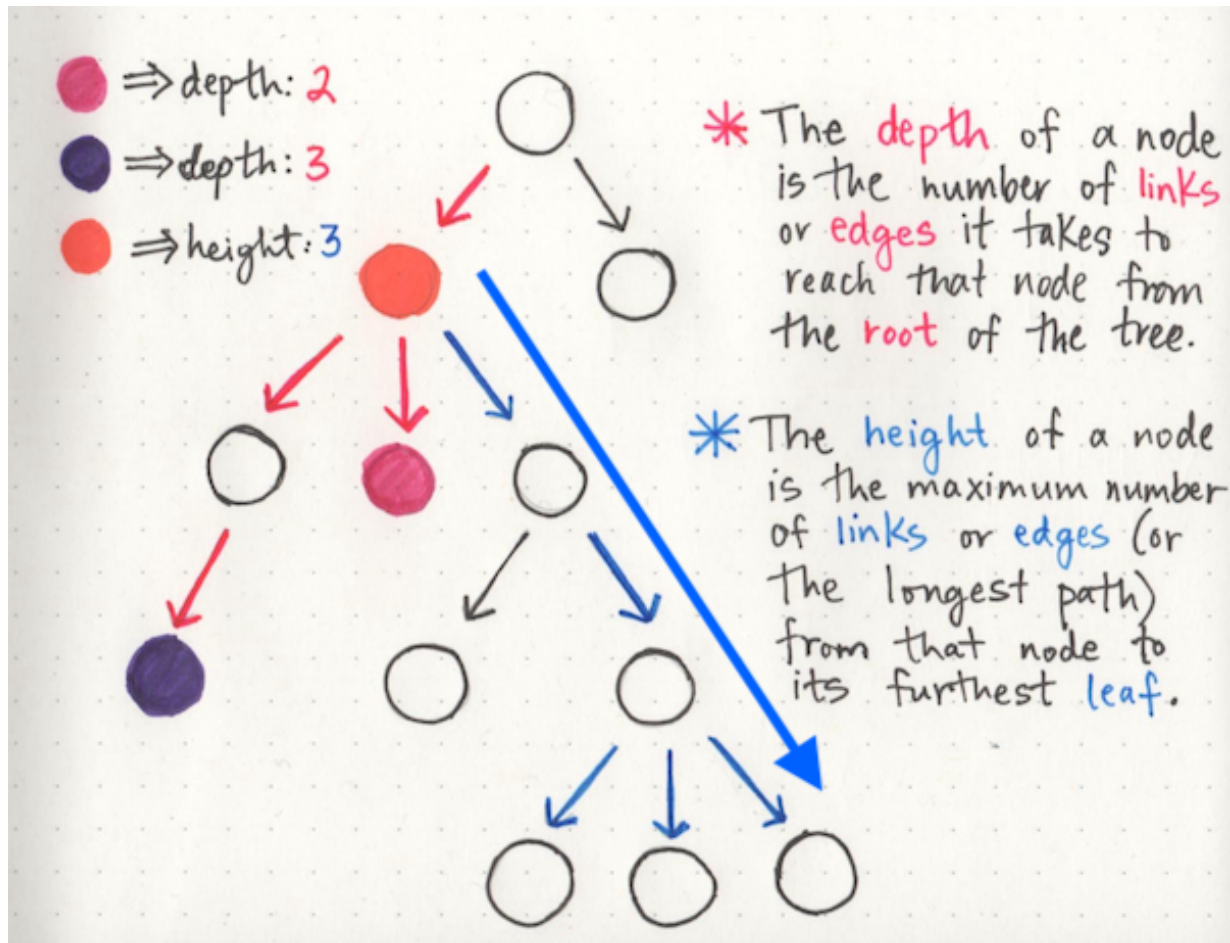 ⇒ depth: 2
⇒ depth: 3
⇒ height: 3
* The depth of a node
is the number of links
or edges it takes to
reach that node from
the root of the tree.
* The height of a node
is the maximum number
of links or edges (or
the longest path)
from that node to
its furthest leaf.